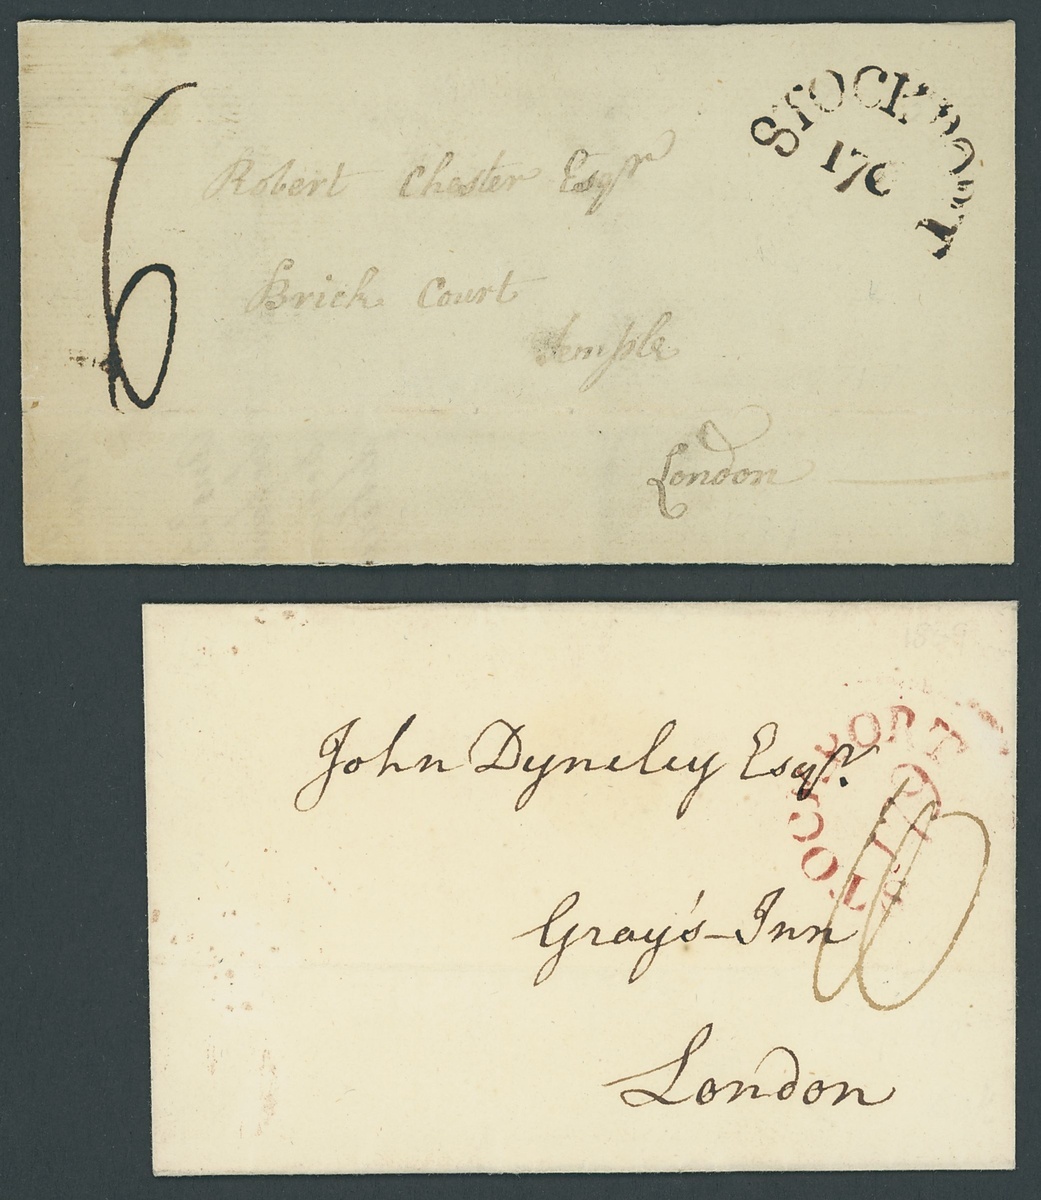 6
Robert Chester Esqr
Brick Court
Temple
London
STOCKPORT
176
John Dyneley Esqr.
Gray's-Inn
London
STOCKPORT